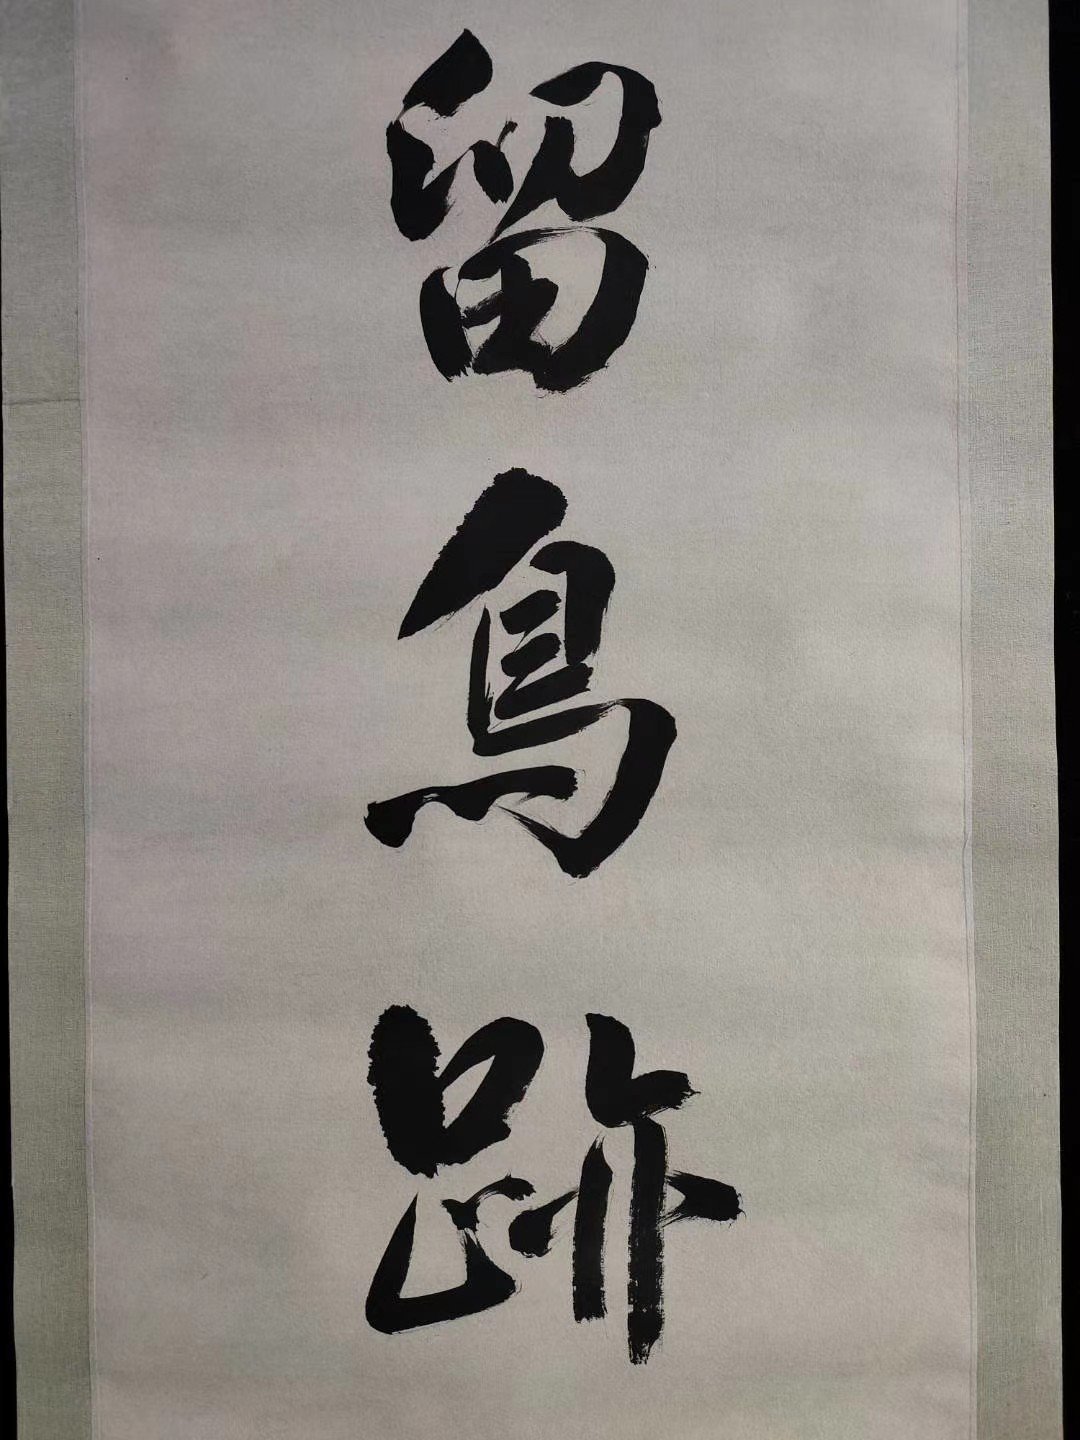 留鳥跡